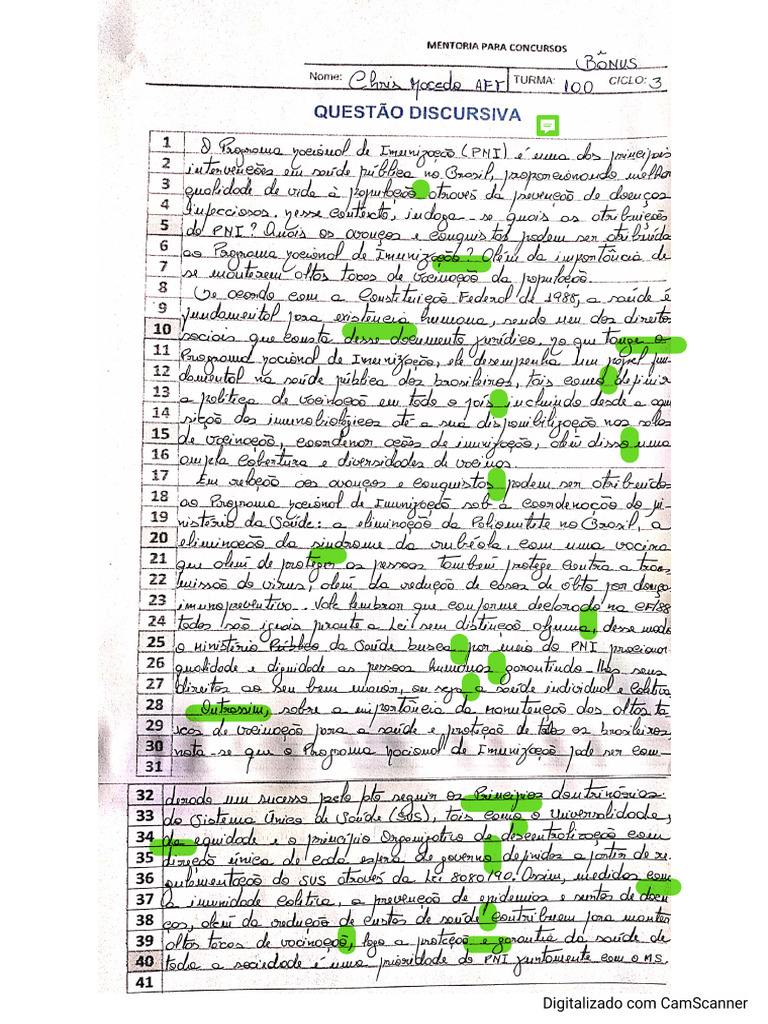 MENTORIA PARA CONCURSOS
BÔNUS
Nome: Chris Macedo AFT TURMA: 100 CICLO: 3
QUESTÃO DISCURSIVA
1 O Programa Nacional de Imunização (PNI) é uma das principais
2 intervenções em saúde pública no Brasil, proporcionando melhor
3 qualidade de vida à população através da prevenção de doenças
4 infecciosas. Nesse contexto, indaga-se quais as atribuições
5 do PNI? Quais os avanços e conquistas podem ser atribuída
6 ao Programa Nacional de Imunização? Além da importância de
7 se manterem altas taxas de vacinação da população.
8 De acordo com a Constituição Federal de 1988, a saúde é
9 fundamental para existência humana, sendo um dos direitos
10 sociais que consta desse documento jurídico, no que tange o
11 Programa Nacional de Imunização, ele desempenha um papel fun-
12 damental na saúde pública dos brasileiros, tais como definir
13 a política de vacinação em todo o país incluindo desde a aqui
14 sição dos imunobiológicos até a sua disponibilização nas salas
15 de vacinação, coordenar ações de imunização, além disso uma
16 ampla cobertura e diversidades de vacinas.
17 Em relação aos avanços e conquistas podem ser atribuído
18 ao Programa Nacional de Imunização sob a coordenação do Mi-
19 nistério da Saúde: a eliminação da Poliomielite no Brasil, a
20 eliminação da síndrome da rubéola, com uma vacina
21 que além de proteger as pessoas também protege contra a trans
22 missão do vírus, além da redução de casos de óbito por doença
23 imunopreventivo. Vale lembrar que conforme declarado na CF/88
24 todos são iguais perante a Lei sem distinção alguma, desse modo
25 o Ministério Público da Saúde busca por meio do PNI procionar
26 qualidade e dignidade as pessoas humanas garantindo-lhes seus
27 direitos ao seu bem maior, ou seja a saúde individual e coletiva
28 Outrossim, sobre a importância da manutenção das altas ta
29 xas de vacinação para a saúde e proteção de todos os brasileiros
30 nota-se que o Programa Nacional de Imunização pode ser com-
31
32 derado um sucesso pelo fato seguir os Princípios doutrinários
33 do Sistema Único de Saúde (SUS), tais como o Universalidade,
34 da equidade e o princípio Organizativo de descentralização com
35 direção única de cada esfera de governo definidos a partir de re
36 gulamentação do SUS através da Lei 8080/90. Assim, medidas com
37 a imunidade coletiva, a prevenção de epidemias e surtos de doen
38 ças, além da redução de custos de saúde contribuem para manter
39 altas taxas de vacinação, logo a proteção e garantia da saúde de
40 toda a sociedade é uma prioridade do PNI juntamente com o MS.
41
Digitalizado com CamScanner